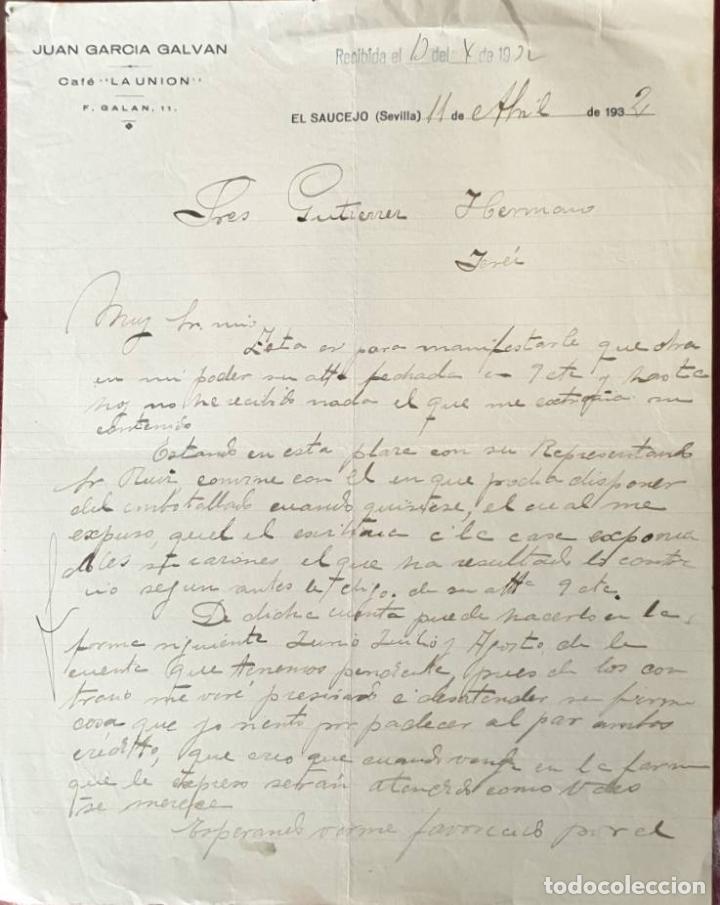 JUAN GARCIA GALVAN
Café "LA UNION"
F. GALAN, 11.
Recibida el 13 del X de 192
EL SAUCEJO (Sevilla) 11 de Abril de 1932
Sres Gutierrez Hermano
Jeréz
Muy Sr. mio
Esta es para manifestarle que obra
en mi poder su atta fechada en 9 cte y hasta
hoy no he recibido nada el que me extraña su
contenido
Estando en esta plaza con su Representando
Sr. Ruiz, convine con él en que podia disponer
del embotellado cuando quisiese, el cual me
expuso, que el escribiria a la casa
razones, el que ha resultado lo contra
rio segun antes le digo de su atta 9 cte.
De dicha cuenta puede hacerlo en la
forma siguiente Junio Julio y Agosto, de la
cuenta que tenemos pendiente, pues de los con
trario me veré presisado a desatender su firma
cosa que yo siento por padecer al par ambos
crédito, que creo que cuando venga en la forma
que le expreso serán atendido como Vdes
se merece
Esperando verme favorecido por el
todocoleccion.net